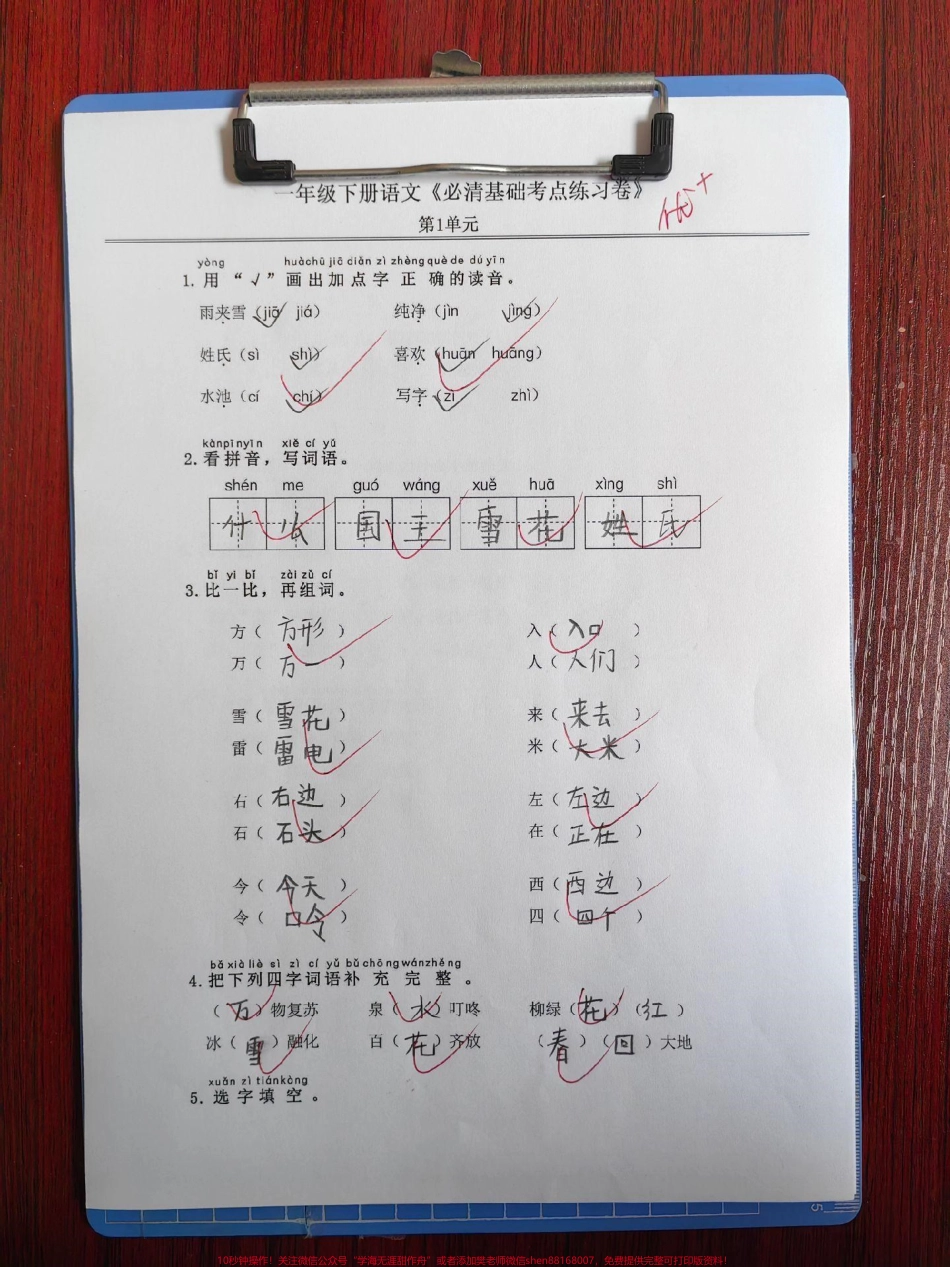 一年级下册语文《必清基础考点练习卷》
优+
第1单元
yòng huàchū jiā diǎn zì zhèng què de dú yīn
1. 用“√”画出加点字正确的读音。
雨夹雪（jiā jiá） 纯净（jìn jìng）
姓氏（sì shì） 喜欢（huān huāng）
水池（cí chí） 写字（zì zhì）
kàn pīn yīn xiě cí yǔ
2. 看拼音，写词语。
shén me guó wáng xuě huā xìng shì
什么 国王 雪花 姓氏
bǐ yi bǐ zài zǔ cí
3. 比一比，再组词。
方（方形） 入（入口）
万（万一） 人（人们）
雪（雪花） 来（来去）
雷（雷电） 米（大米）
右（右边） 左（左边）
石（石头） 在（正在）
今（今天） 西（西边）
令（口令） 四（四个）
bǎ xià liè sì zì cí yǔ bǔ chōng wán zhěng
4. 把下列四字词语补充完整。
（万）物复苏 泉（水）叮咚 柳绿（花）（红）
冰（雪）融化 百（花）齐放 （春）（回）大地
xuǎn zì tián kòng
5. 选字填空。
5
10秒钟操作！关注微信公众号“学海无涯甜作舟”或者添加樊老师微信shen88168007，免费提供完整可打印版资料！